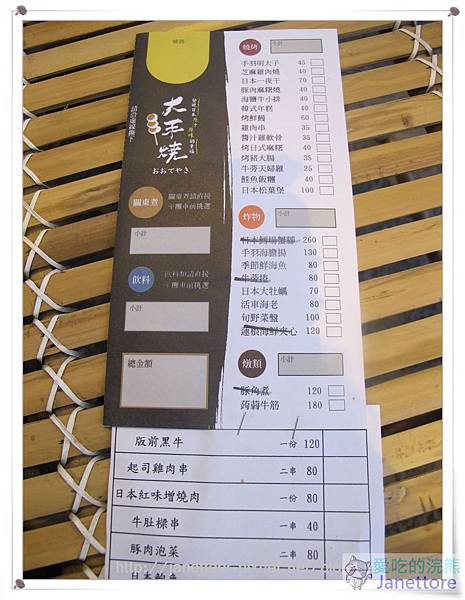 號碼
發現日本原汁原味的幸福
大手燒
おおてやき
請沿虛線撕下
關東煮
關東煮請直接
至攤車前挑選
小計
飲料
飲料類請直接
至攤車前挑選
小計
總金額
燒烤
小計
手羽明太子 45
芝麻雞肉燒 40
日本一夜干 70
豚肉麻糬燒 70
海鹽牛小排 40
韓式年糕 40
烤鮮鰻 60
雞肉串 50
醬汁雞軟骨 60
烤日式麻糬 40
烤豬大腸 50
牛蒡天婦羅 40
鮭魚飯糰 40
日本松葉堡 100
炸物
小計
日本鱈場蟹腳 260
手羽海膽揚 130
季節鮮海魚 80
牛蒡捲 80
日本大牡蠣 70
活車海老 80
旬野菜盤 100
蓮根海鮮夾心 120
燉類
小計
豚角煮 120
蒟蒻牛筋 180
版前黑牛 一份 120
起司雞肉串 二串 80
日本紅味增燒肉 一份 80
牛肚樑串 一串 40
豚肉泡菜 二串 80
愛吃的浣熊
Janettore